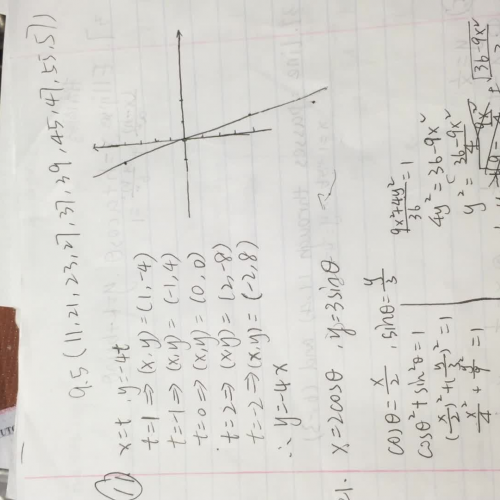 9.5 (11, 21, 23, 27, 37, 39, 45, 47, 55, 57)
11) x=t y=-4t
t=1 ⇒ (x,y) = (1,-4)
t=-1 ⇒ (x,y) = (-1,4)
t=0 ⇒ (x,y) = (0,0)
t=2 ⇒ (x,y) = (2,-8)
t=-2 ⇒ (x,y) = (-2,8)
∴ y=-4x
21. x=2cosθ, y=3sinθ
cosθ = x/2, sinθ = y/3
cos²θ + sin²θ = 1
(x/2)² + (y/3)² = 1
x²/4 + y²/9 = 1
9x²+4y²/36 = 1
4y² = 36-9x²
y² = 36-9x²/4